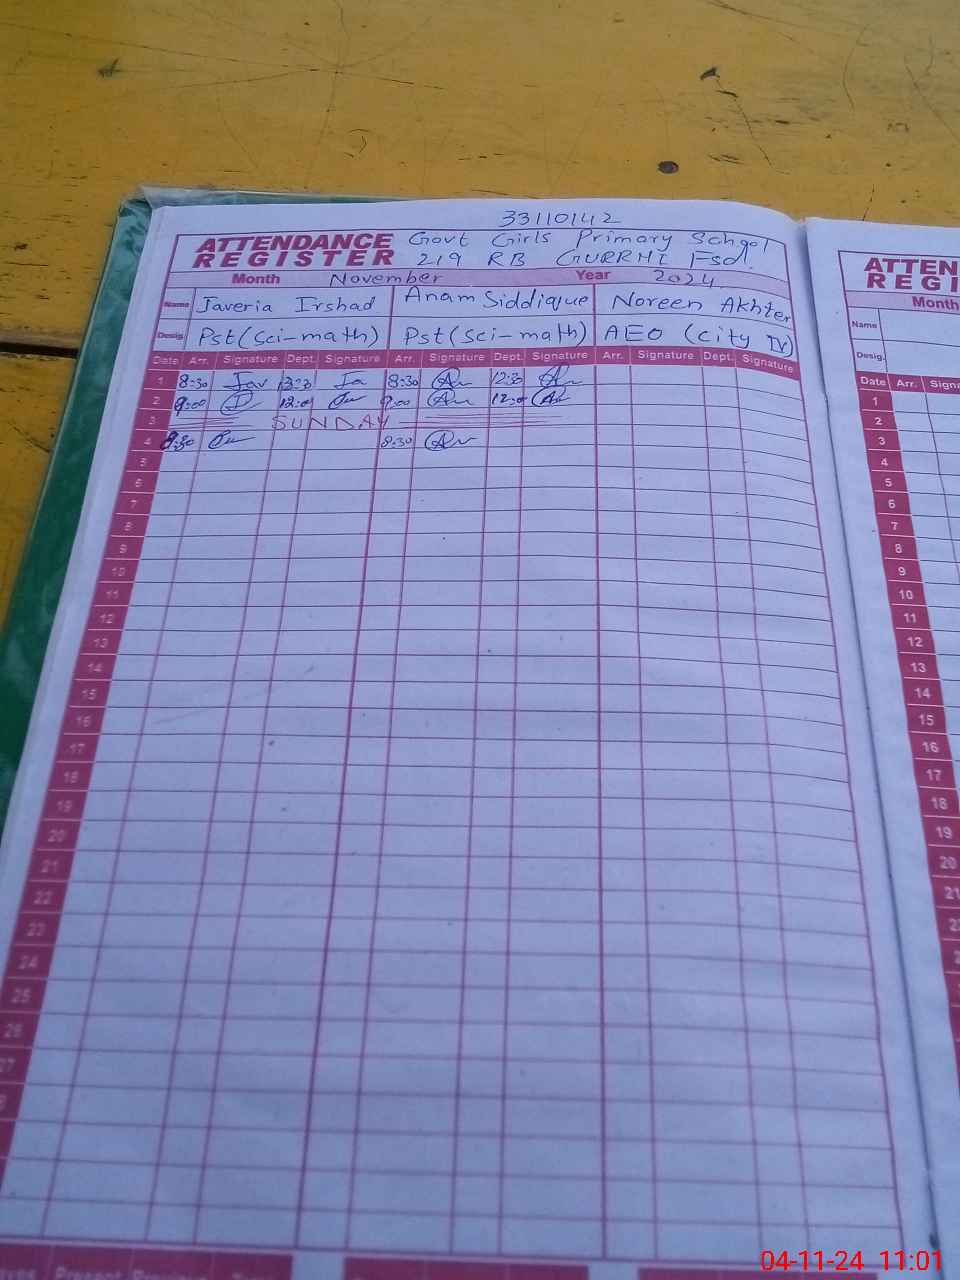 33110142
ATTENDANCE REGISTER
Govt Girls Primary School
219 RB GURRHI Fsd.
Month November Year 2024
Name Javeria Irshad Anam Siddique Noreen Akhter
Desig. Pst(Sci-math) Pst(sci-math) AEO (city IV)
Date Arr. Signature Dept. Signature Arr. Signature Dept. Signature Arr. Signature Dept. Signature
1 8:30 Jav Ja 8:30 12:30
2 9:00 12:00 9:00 12:00
3 SUNDAY
4 8:30 8:30
5
6
7
8
9
10
11
12
13
14
15
16
17
18
19
20
21
22
23
24
25
26
27
ATTEN
REGI
Month
Name
Desig.
Date Arr. Signa
1
2
3
4
5
6
7
8
9
10
11
12
13
14
15
16
17
18
19
20
21
04-11-24 11:01